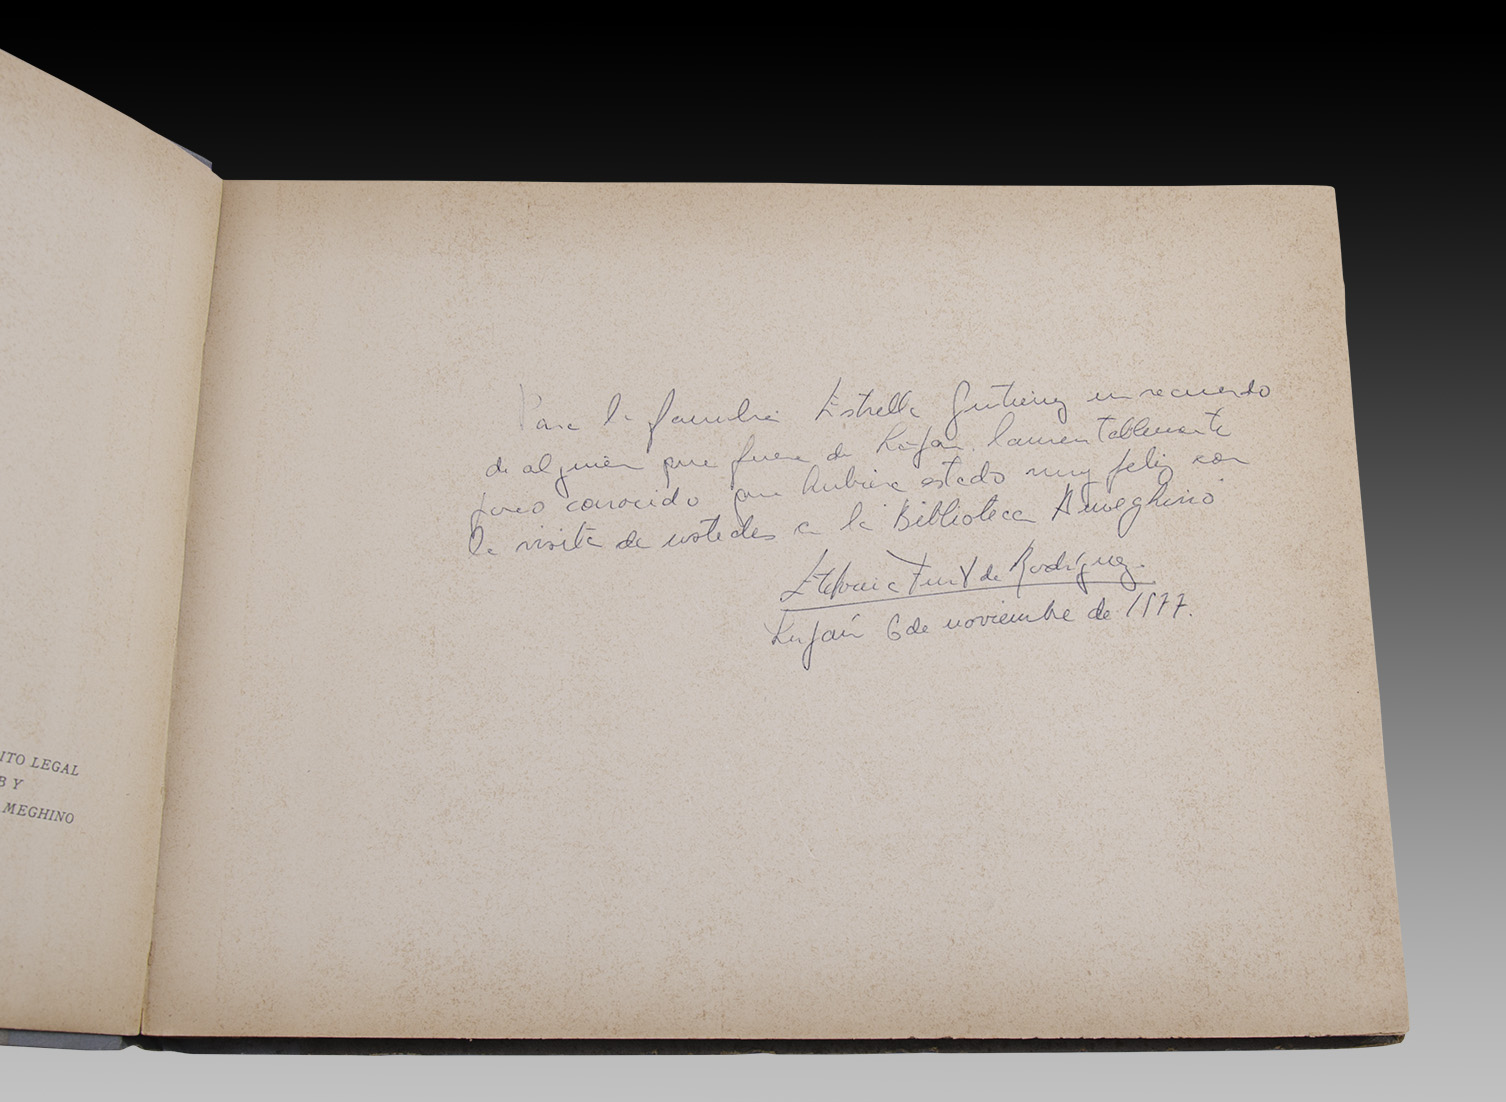 ITO LEGAL
B Y
MEGHINO
Para la familia Estrella Gutierrez un recuerdo
de alguien que fuera de Luján, lamentablemente
poco conocido que hubiera estado muy feliz con
la visita de ustedes a la Biblioteca Ameghino
de Rodríguez.
Luján 6 de noviembre de 1977.